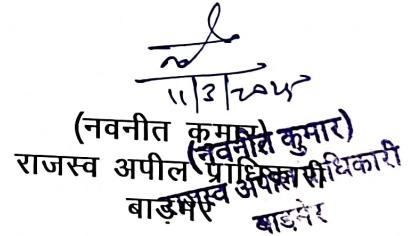 11/3/2025
(नवनीत कुमार)
राजस्व अपील प्राधिकारी
बाड़मेर
(नवनीत कुमार)
राजस्व अपील प्राधिकारी
बाड़मेर